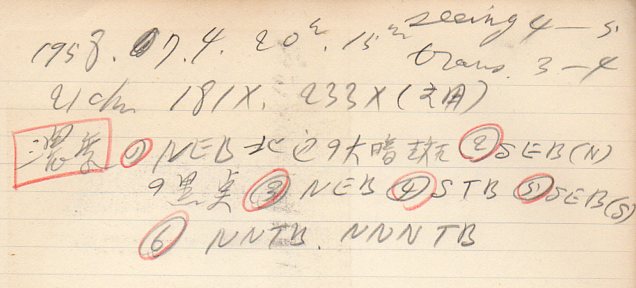 1958. 07. 4. 20h. 15m seeing 4–5
trans. 3–4
21cm 181X. 233X (主用)
濃度 ① NEB北辺の大暗斑 ② SEB(N)
の黒点 ③ NEB ④ STB ⑤ SEB(S)
⑥ NNTB. NNNTB